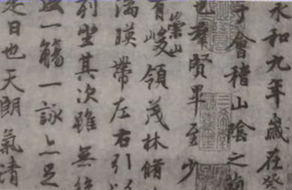 永和九年歲在癸
于會稽山陰之
也羣賢畢至少
有崇山峻領茂林脩
湍暎帶左右引以
列坐其次雖無
一觴一詠亦足
是日也天朗氣清